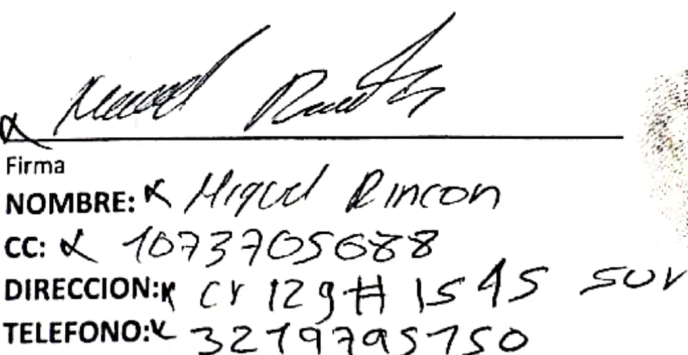 Firma
NOMBRE: Miguel Rincon
CC: 1073705688
DIRECCION: Cr 12g # 1545 sur
TELEFONO: 3219795150